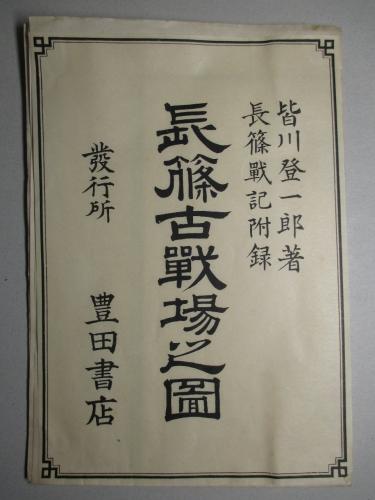 皆川登一郎著
長篠戰記附錄
長篠古戰場之圖
發行所　豊田書店